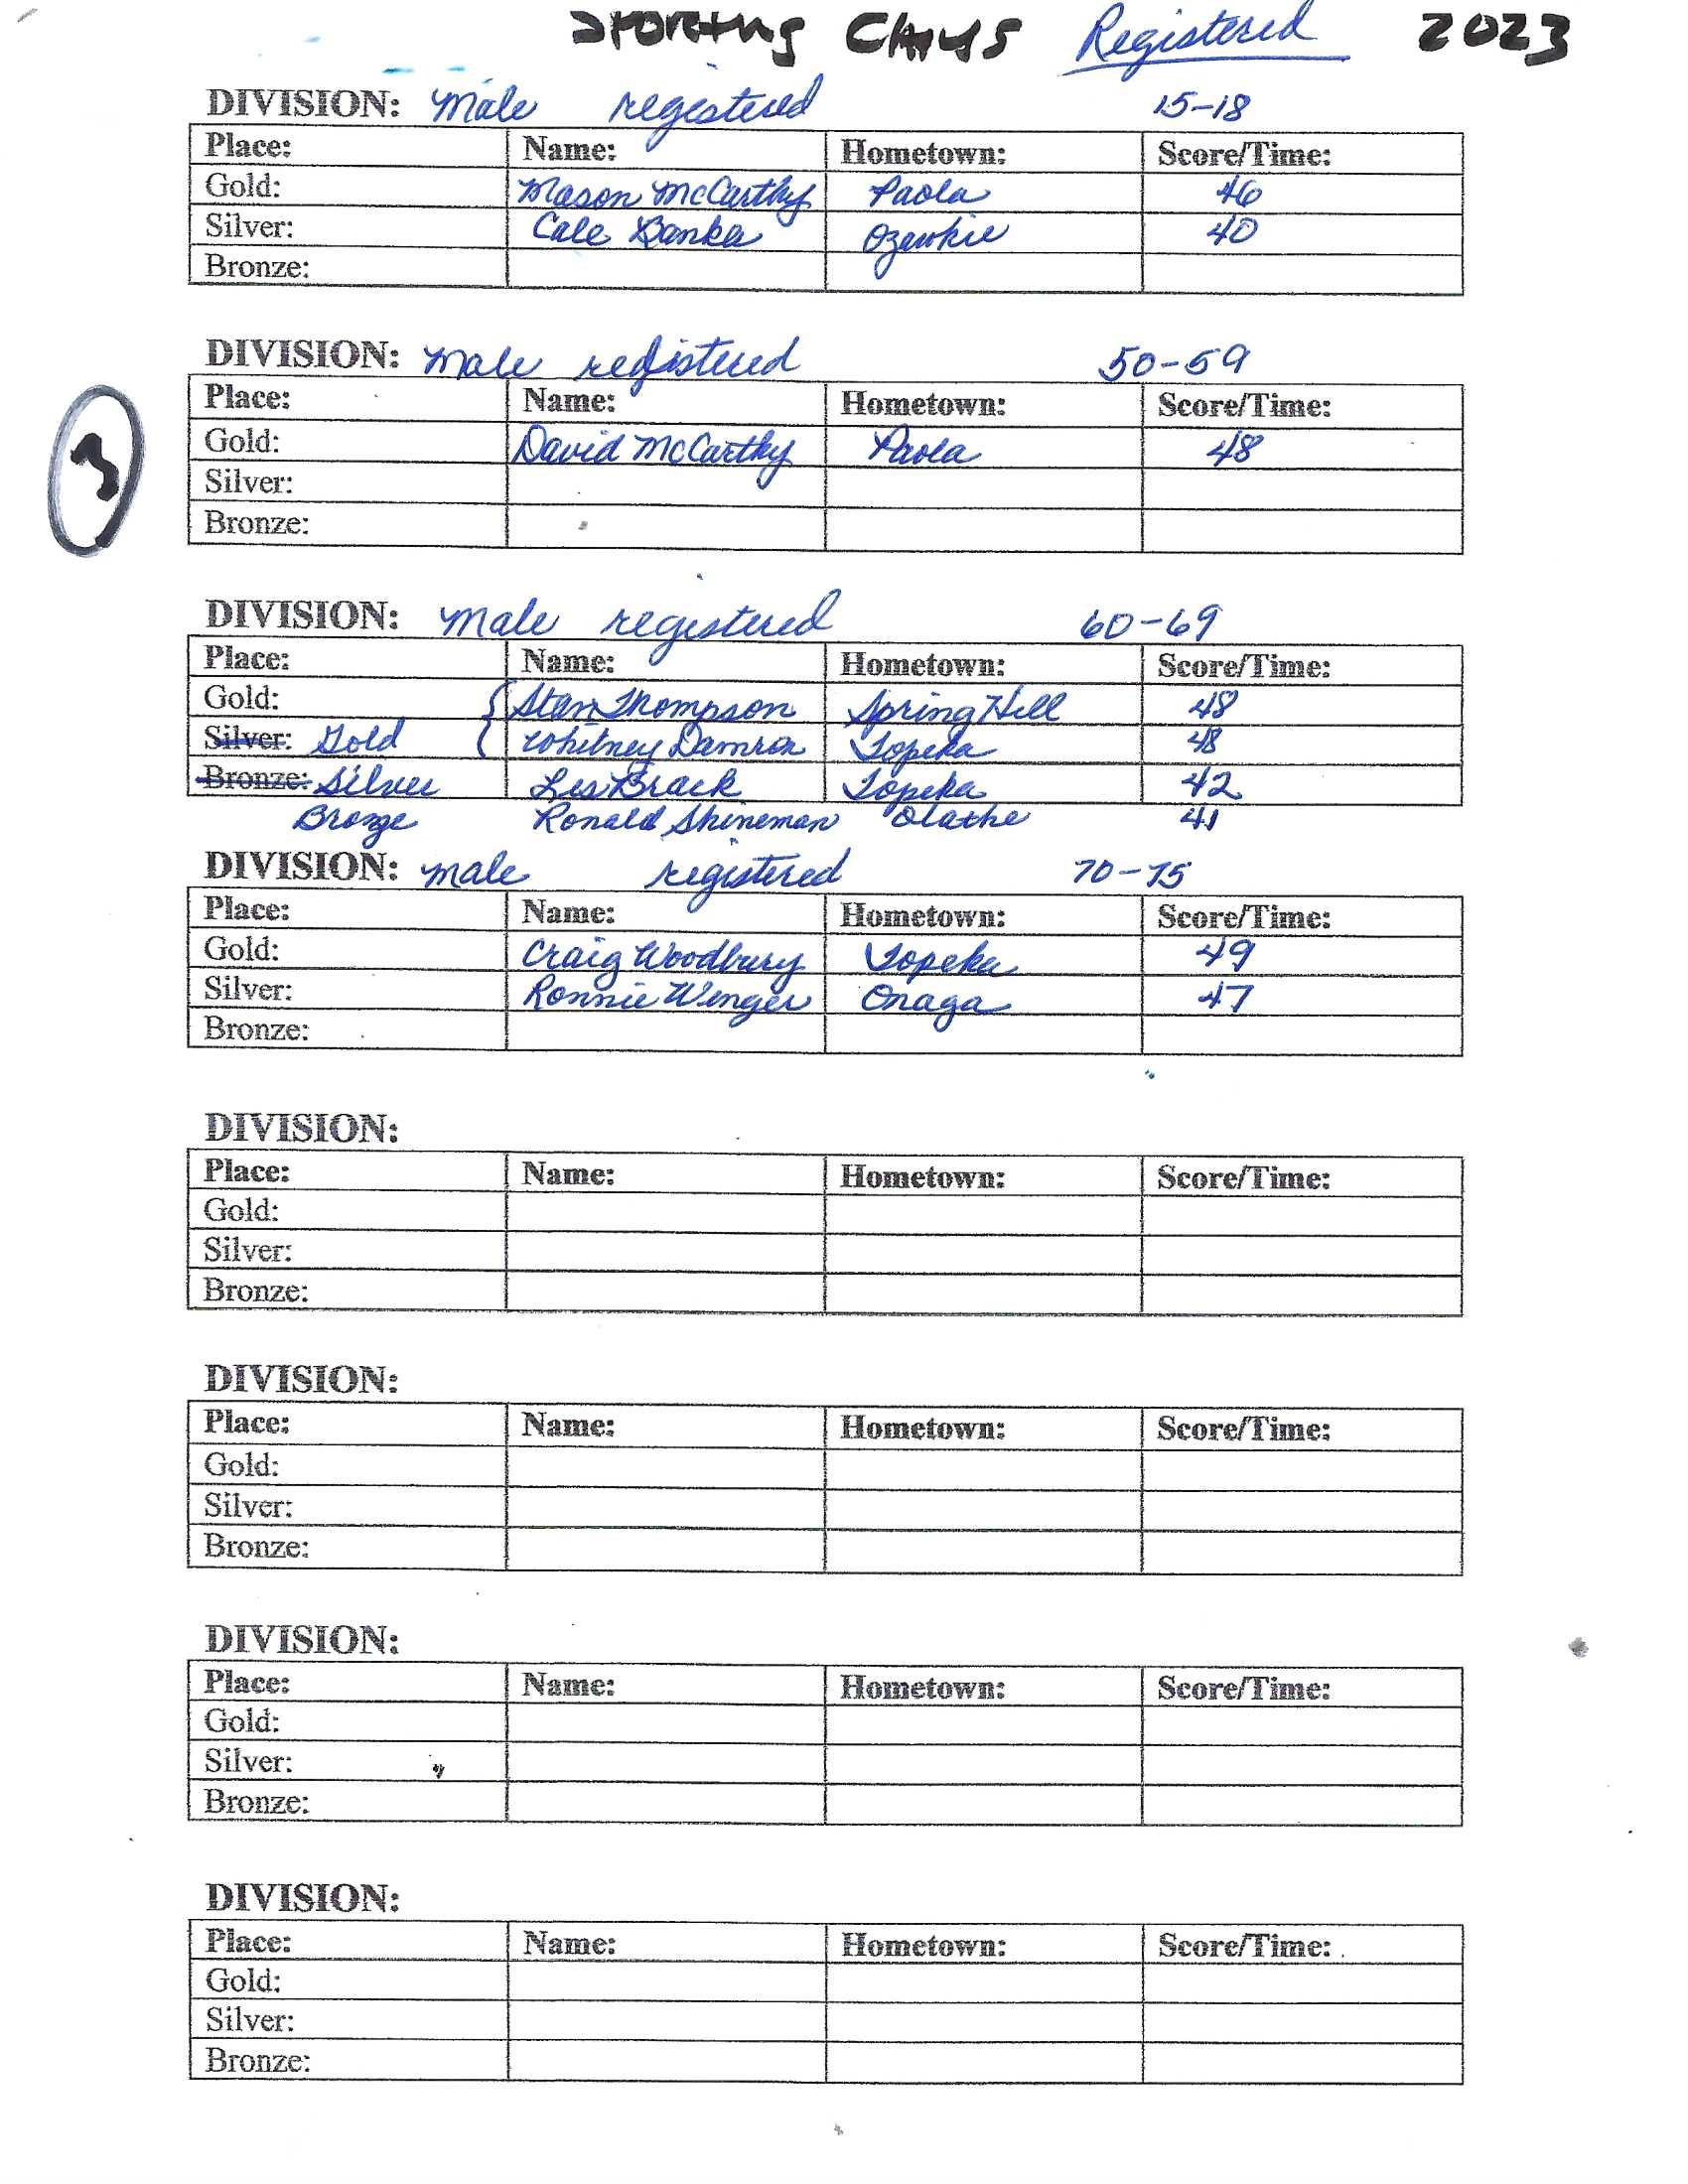 Sporting Clays Registered 2023
DIVISION: Male registered 15-18
Place: Name: Hometown: Score/Time:
Gold: Mason McCarthy Paola 46
Silver: Cale Banka Ozawkie 40
Bronze:
DIVISION: Male registered 50-59
Place: Name: Hometown: Score/Time:
3
Gold: David McCarthy Paola 48
Silver:
Bronze:
DIVISION: Male registered 60-69
Place: Name: Hometown: Score/Time:
Gold: Stan Thompson Spring Hill 48
Silver: Gold Whitney Damron Topeka 48
Bronze: Silver Les Brack Topeka 42
Bronze Ronald Shineman Olathe 41
DIVISION: Male registered 70-75
Place: Name: Hometown: Score/Time:
Gold: Craig Woodbury Topeka 49
Silver: Ronnie Wenger Onaga 47
Bronze:
DIVISION:
Place: Name: Hometown: Score/Time:
Gold:
Silver:
Bronze:
DIVISION:
Place: Name: Hometown: Score/Time:
Gold:
Silver:
Bronze:
DIVISION:
Place: Name: Hometown: Score/Time:
Gold:
Silver:
Bronze:
DIVISION:
Place: Name: Hometown: Score/Time:
Gold:
Silver:
Bronze: